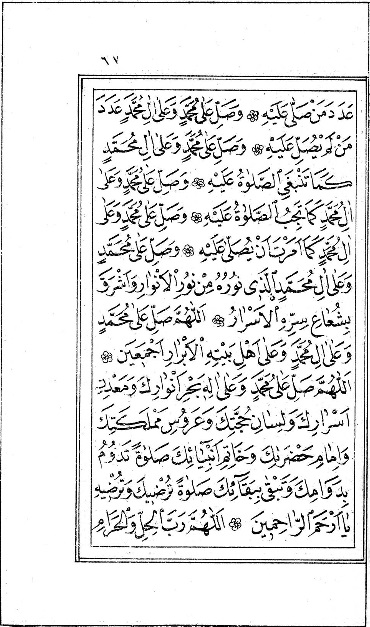 ٦٧
عَدَدَ مَنْ صَلَّى عَلَيْهِ ۞ وَصَلِّ عَلَى مُحَمَّدٍ وَعَلَى اٰلِ مُحَمَّدٍ عَدَدَ
مَنْ لَمْ يُصَلِّ عَلَيْهِ ۞ وَصَلِّ عَلَى مُحَمَّدٍ وَعَلَى اٰلِ مُحَمَّدٍ
كَمَا تَنْبَغِي الصَّلٰوةُ عَلَيْهِ ۞ وَصَلِّ عَلَى مُحَمَّدٍ وَعَلَى
اٰلِ مُحَمَّدٍ كَمَا تَجِبُ الصَّلٰوةُ عَلَيْهِ ۞ وَصَلِّ عَلَى مُحَمَّدٍ وَعَلَى
اٰلِ مُحَمَّدٍ كَمَا اَمَرْتَ اَنْ يُصَلَّى عَلَيْهِ ۞ وَصَلِّ عَلَى مُحَمَّدٍ
وَعَلَى اٰلِ مُحَمَّدٍ الَّذِي نُورُهُ مِنْ نُورِ الْاَنْوَارِ وَاَشْرَقَ
بِشُعَاعِ سِرِّهِ الْاَسْرَارُ ۞ اَللّٰهُمَّ صَلِّ عَلَى مُحَمَّدٍ
وَعَلَى اٰلِ مُحَمَّدٍ وَعَلَى اَهْلِ بَيْتِهِ الْاَبْرَارِ اَجْمَعِينَ ۞
اَللّٰهُمَّ صَلِّ عَلَى مُحَمَّدٍ وَعَلَى اٰلِهِ بَحْرِ اَنْوَارِكَ وَمَعْدِنِ
اَسْرَارِكَ وَلِسَانِ حُجَّتِكَ وَعَرُوسِ مَمْلَكَتِكَ
وَاِمَامِ حَضْرَتِكَ وَخَاتِمِ اَنْبِيَائِكَ صَلٰوةً تَدُومُ
بِدَوَامِكَ وَتَبْقَى بِبَقَائِكَ صَلٰوةً تُرْضِيكَ وَتُرْضِيهِ
يَا اَرْحَمَ الرَّاحِمِينَ ۞ اَللّٰهُمَّ رَبَّ الْحِلِّ وَالْحَرَامِ